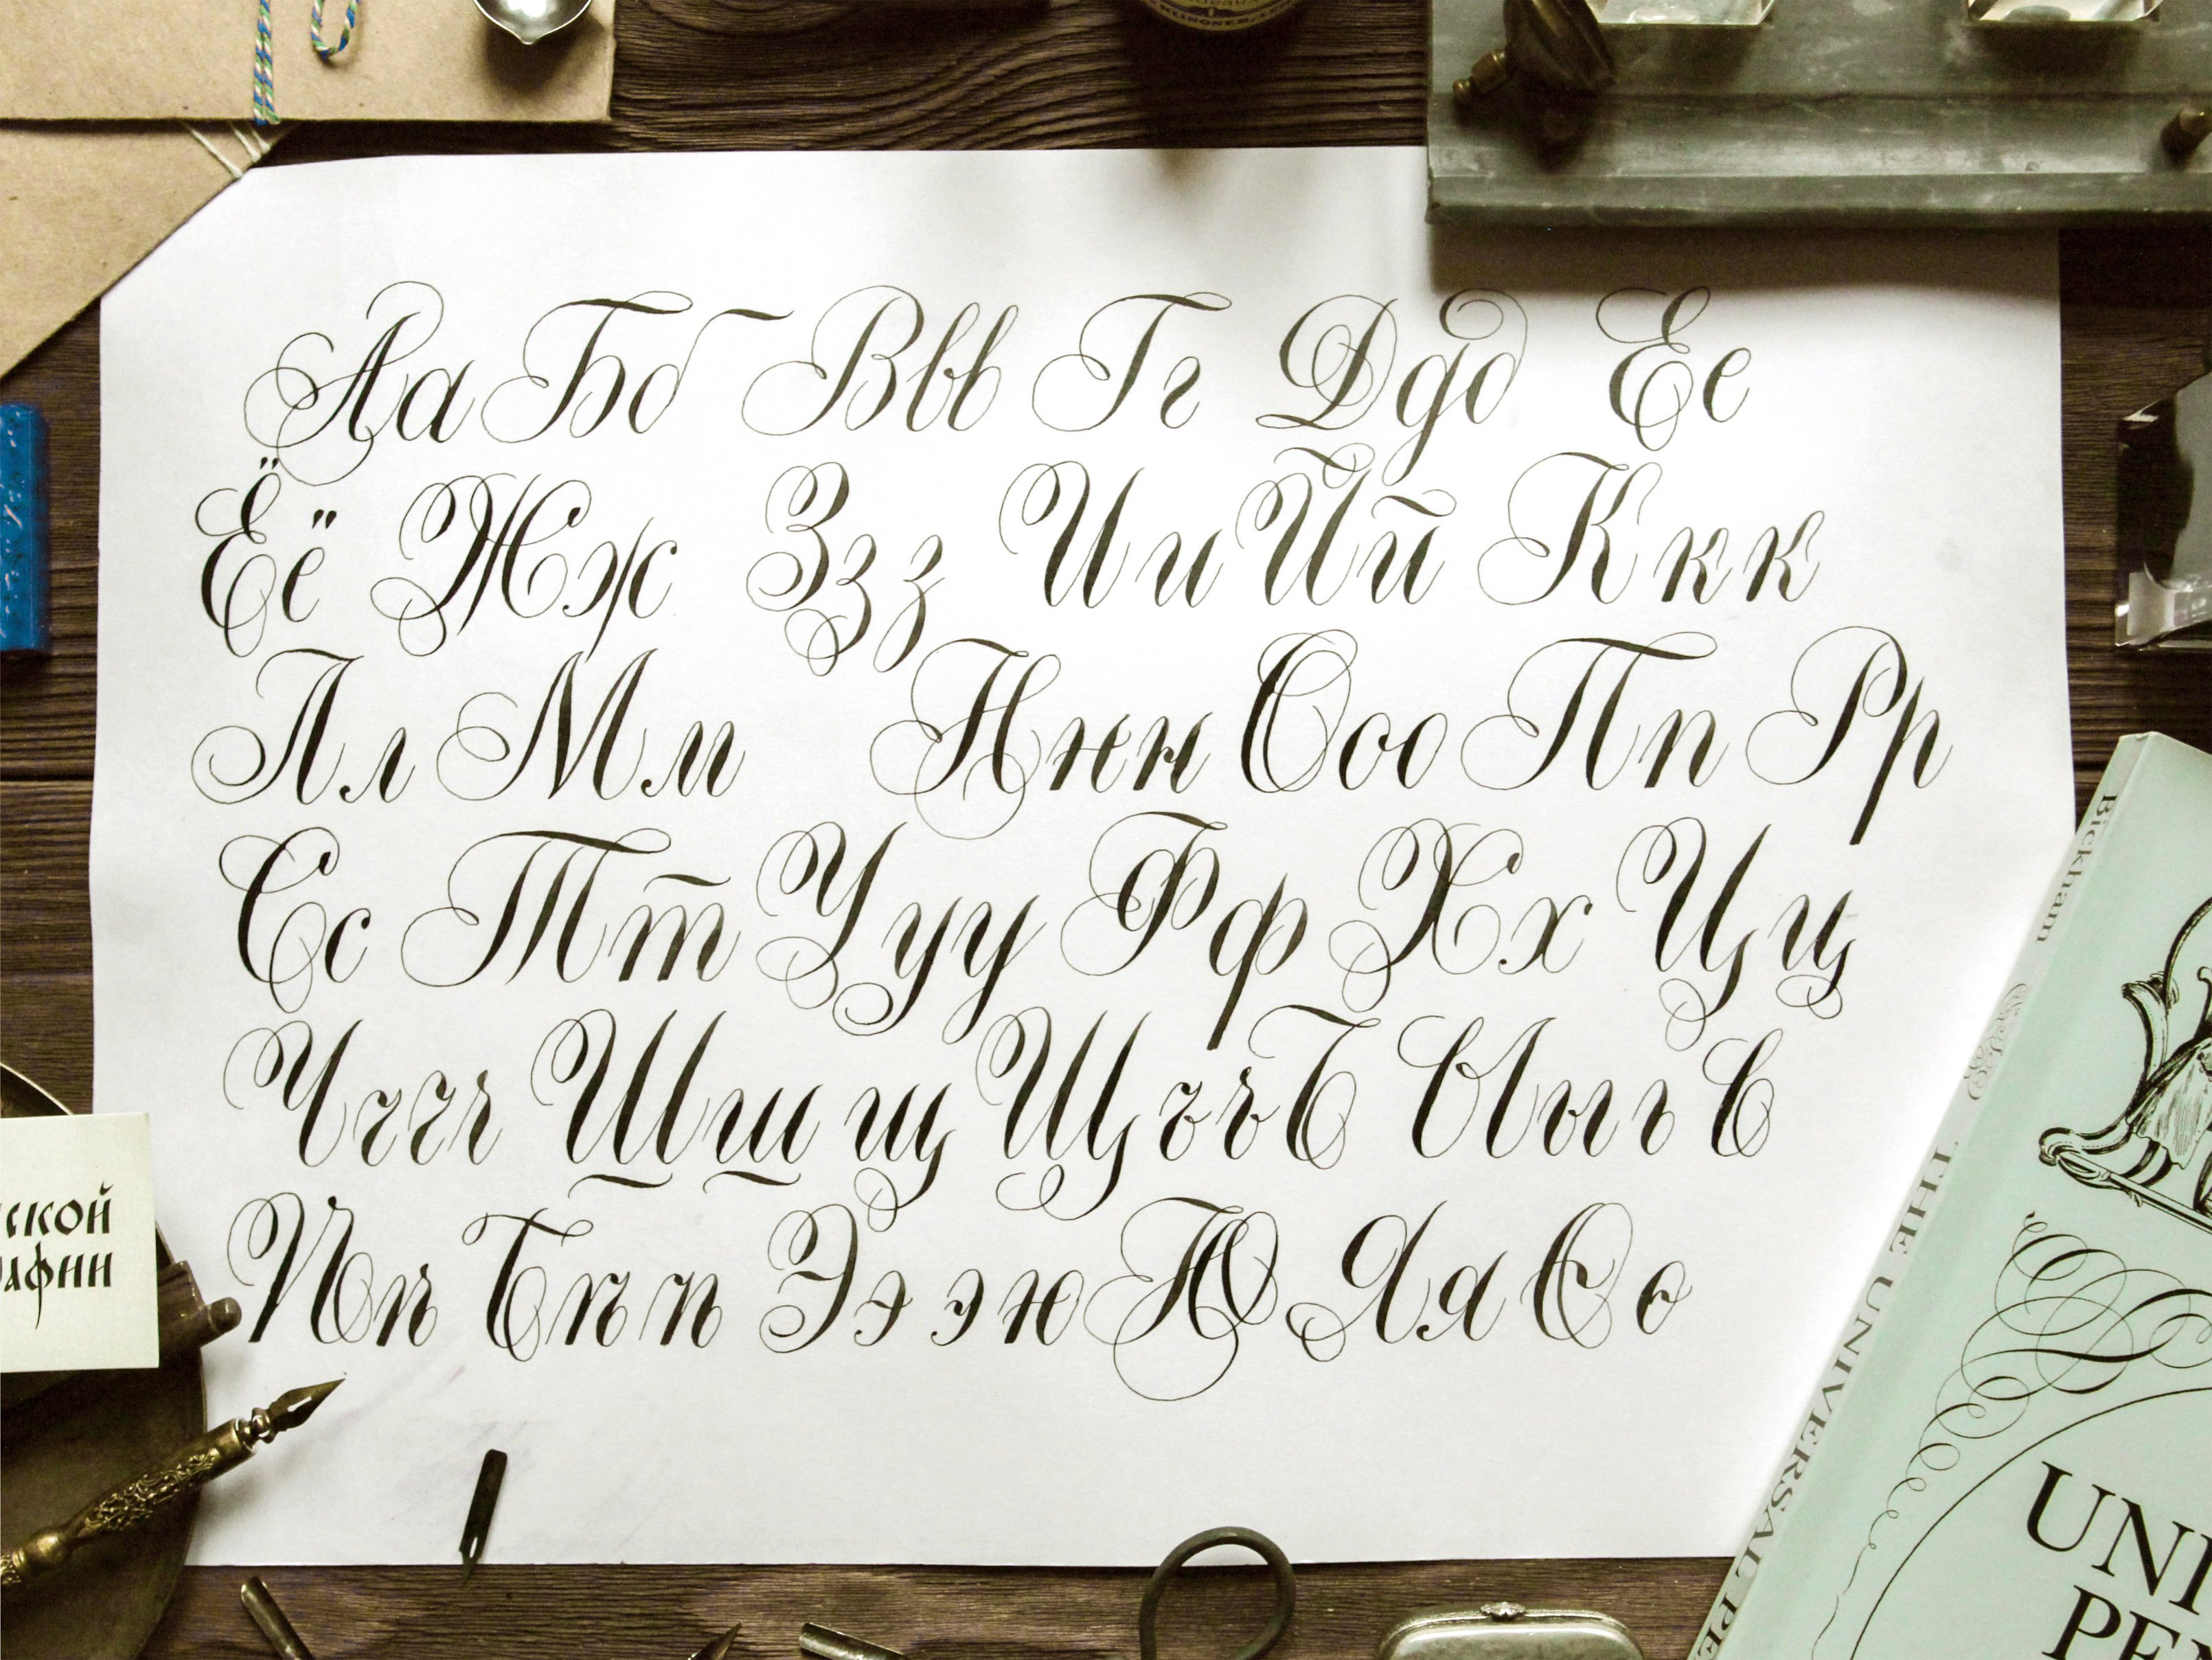 Аа Бб Ввв Гг Ддд Ее
Ёё Жж Ззз Ии Йй Ккк
Лл Мм Ннн Ооо Пп Рр
Сс Тт Ууу Фф Хх Цц
Чччч Шш щЩ ъъЪ Ыы ьЬ
Эээ юЮ Яя Ѳѳ
ской
афии
Bickham THE UNIVERSAL PE
UNI
PE